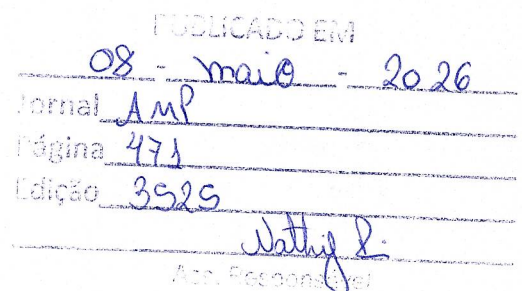 PUBLICADO EM
08 - maio - 2026
Jornal AMP
Página 471
Edição 3525
Ass. Responsável